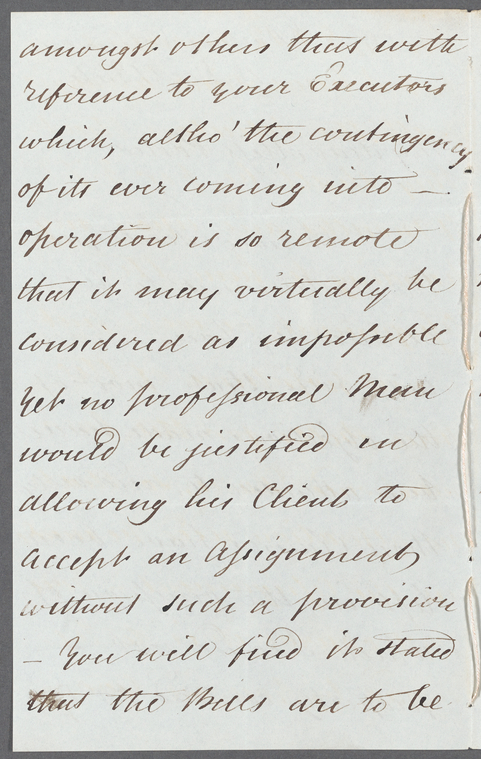 amongst others that with
reference to your Executors
which, altho' the contingency
of its ever coming into —
operation is so remote
that it may virtually be
considered as impossible
yet no professional Man
would be justified in
allowing his Client to
accept an Assignment
without such a provision
— You will find it stated
that the Bills are to be